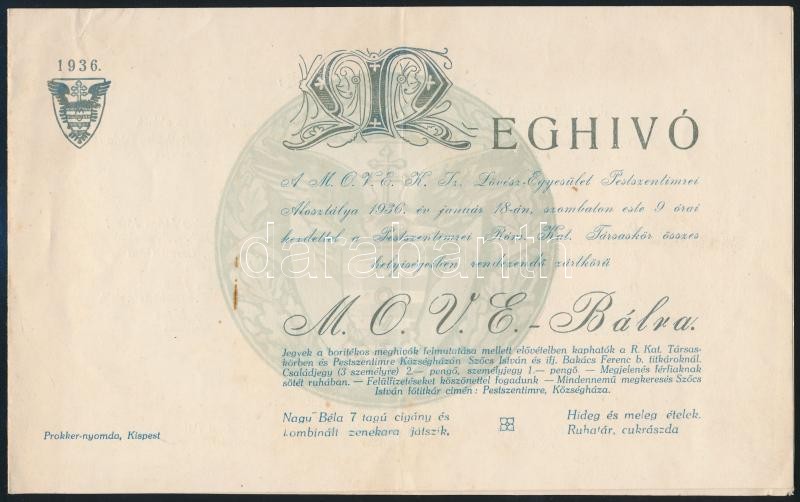 1936.
MEGHIVÓ
A M. O. V. E. K. Tz. Lövész-Egyesület Pestszentimrei
Alosztálya 1936. év január 18-án, szombaton este 9 órai
kezdettel a Pestszentimrei Róm. Kat. Társaskör összes
helyiségeiben rendezendő zártkörű
M. O. V. E.-Bálra.
Jegyek a boritékos meghivók felmutatása mellett elővételben kaphatók a R. Kat. Társas-
körben és Pestszentimre Községházán Szőcs István és ifj. Bakács Ferenc b. titkároknál.
Családjegy (3 személyre) 2.— pengő, személyjegy 1.— pengő. — Megjelenés férfiaknak
sötét ruhában. — Felülfizetéseket köszönettel fogadunk — Mindennemű megkeresés Szőcs
István főtitkár cimén: Pestszentimre, Községháza.
Nagy Béla 7 tagú cigány és
kombinált zenekara játszik.
Hideg és meleg ételek.
Ruhatár, cukrászda
Prokker-nyomda, Kispest
darabanth